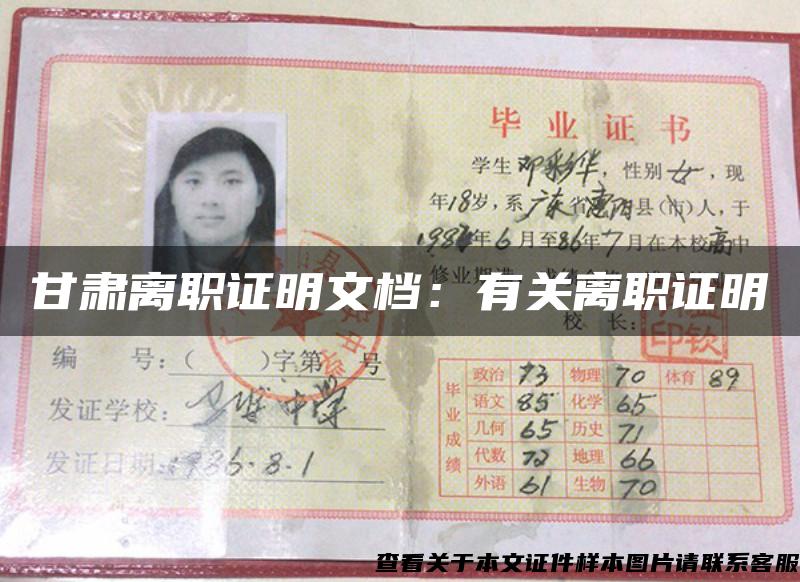 毕业证书
学生邓彩华，性别女，现
年18岁，系广东省惠阳县(市)人，于
1983年6月至86年7月在本校高中
甘肃离职证明文档：有关离职证明
校 长：
编 号：（ ）字第 号
发证学校：
中学
发证日期：1986.8.1
毕业成绩
政治 73 物理 70 体育 89
语文 85 化学 65
几何 65 历史 71
代数 72 地理 66
外语 61 生物 70
查看关于本文证件样本图片请联系客服